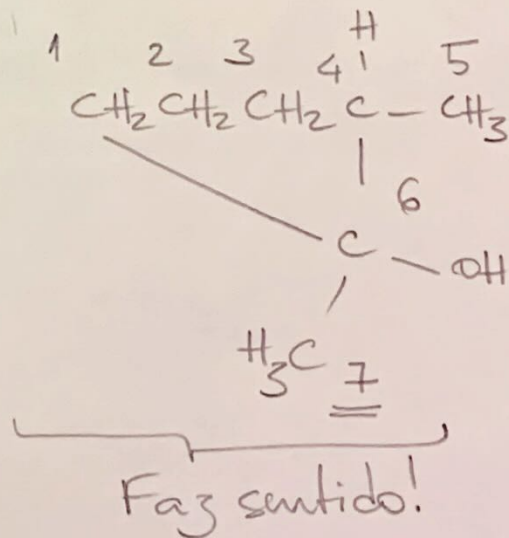 1 2 3 4 H 5
CH₂CH₂CH₂C—CH₃
6
C—OH
H₃C 7
Faz sentido!